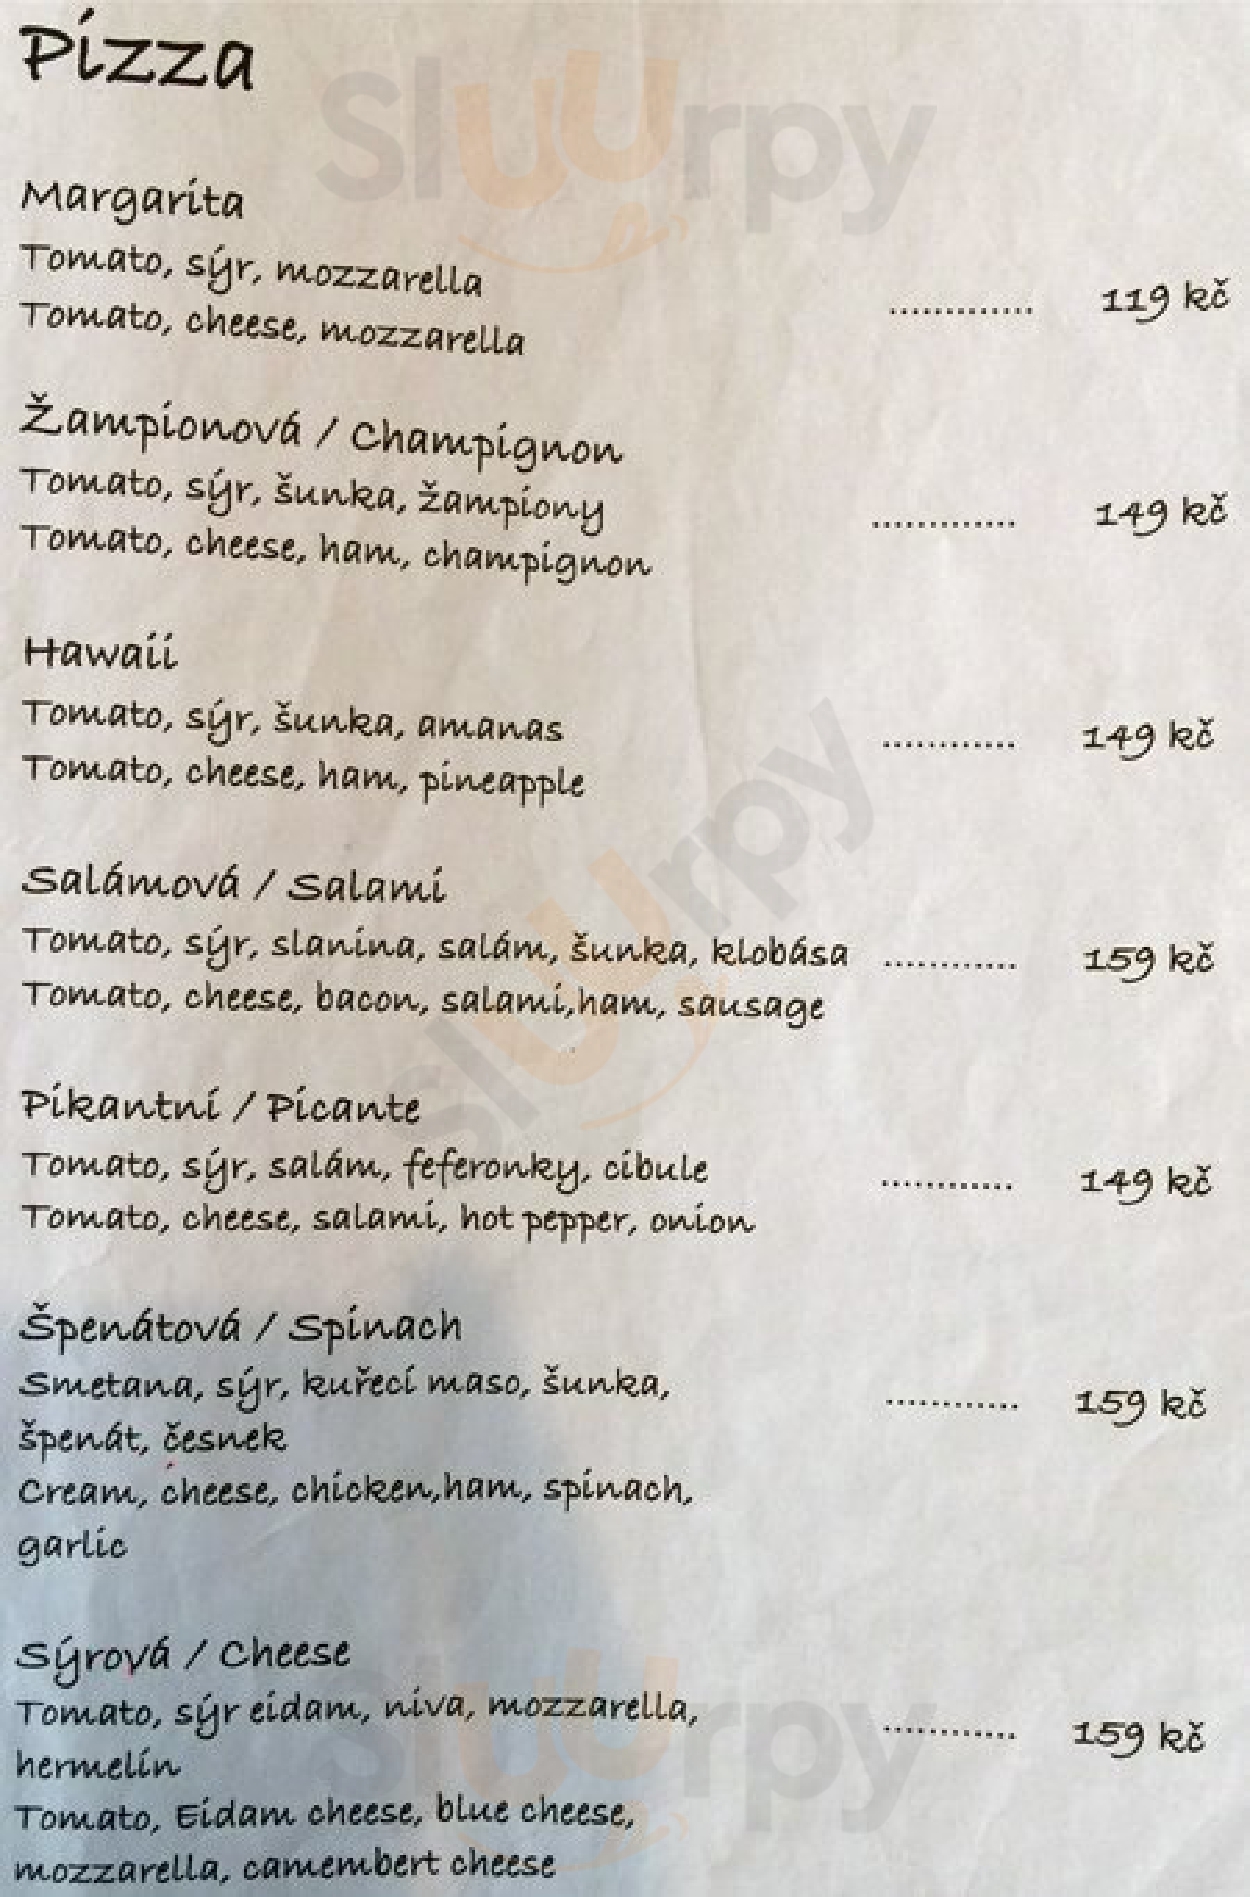 Pizza
Sluurpy
Margarita
Tomato, sýr, mozzarella
Tomato, cheese, mozzarella
............. 119 kč
Žampionová / Champignon
Tomato, sýr, šunka, žampiony
Tomato, cheese, ham, champignon
............. 149 kč
Hawaii
Tomato, sýr, šunka, amanas
Tomato, cheese, ham, pineapple
............ 149 kč
Sluurpy
Salámová / Salami
Tomato, sýr, slanina, salám, šunka, klobása ............ 159 kč
Tomato, cheese, bacon, salami,ham, sausage
Pikantní / Picante
Tomato, sýr, salám, feferonky, cibule
Tomato, cheese, salami, hot pepper, onion
............ 149 kč
Špenátová / Spinach
Smetana, sýr, kuřecí maso, šunka,
............ 159 kč
špenát, česnek
Cream, cheese, chicken,ham, spinach,
garlic
Sýrová / Cheese
Tomato, sýr eidam, niva, mozzarella,
............ 159 kč
hermelín
Tomato, Eidam cheese, blue cheese,
mozzarella, camembert cheese
Sluurpy